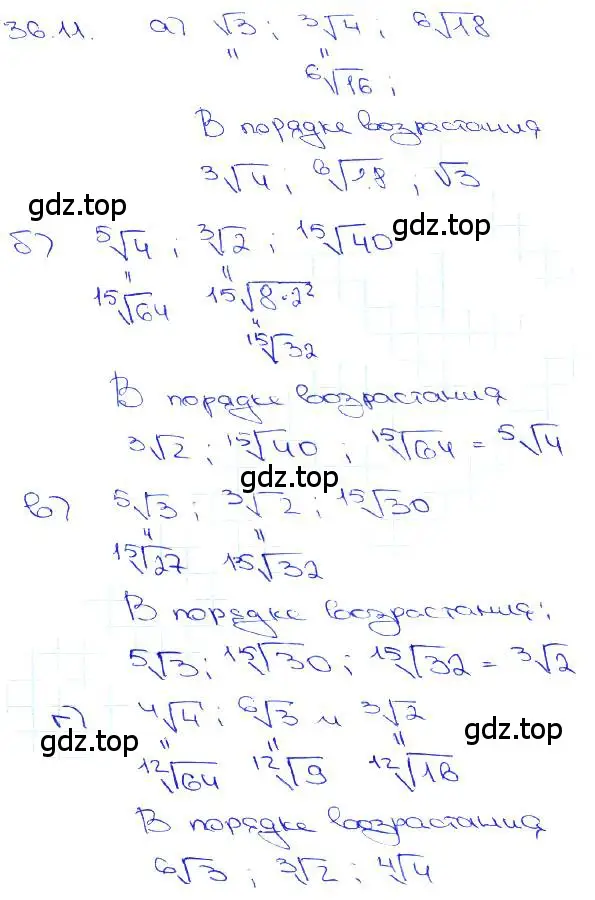 36.11. а) √3 ; ³√4 ; ⁶√18
" "
⁶√16 ;
В порядке возрастания
³√4 ; ⁶√18 ; √3
gdz.top
б) ⁵√4 ; ³√2 ; ¹⁵√40 gdz.top
" "
¹⁵√64 ¹⁵√8·2²
"
¹⁵√32
В порядке возрастания
³√2 ; ¹⁵√40 ; ¹⁵√64 = ⁵√4
gdz.top
в) ⁵√3 ; ³√2 ; ¹⁵√30
" "
¹⁵√27 ¹⁵√32
В порядке возрастания:
⁵√3 ; ¹⁵√30 ; ¹⁵√32 = ³√2
г) ⁴√4 ; ⁶√3 и ³√2
gdz.top gdz.top
" " "
¹²√64 ¹²√9 ¹²√18
В порядке возрастания
⁶√3 ; ³√2 ; ⁴√4